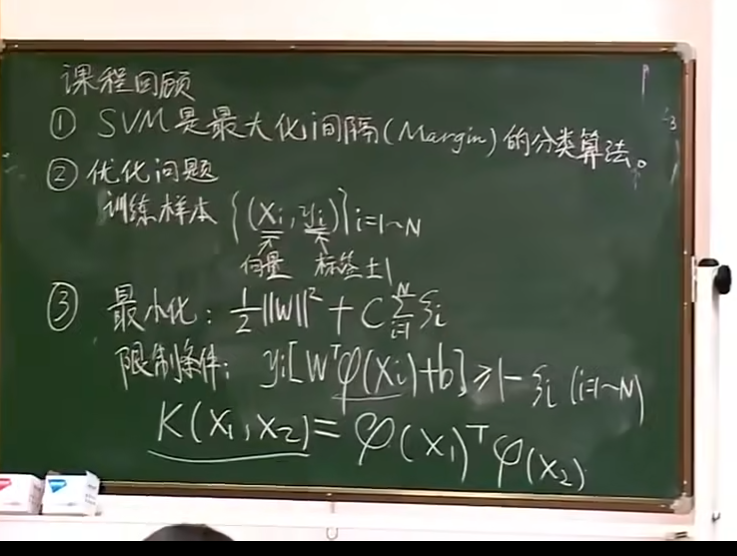 课程回顾
① SVM是最大化间隔(Margin)的分类算法。
② 优化问题
训练样本 {(Xi, yi)}i=1~N
向量 标签±1
③ 最小化: 1/2||W||² + C∑(i=1→N)ξi
限制条件: yi[Wᵀφ(Xi)+b]≥1-ξi (i=1~N)
K(X₁,X₂)=φ(X₁)ᵀφ(X₂)